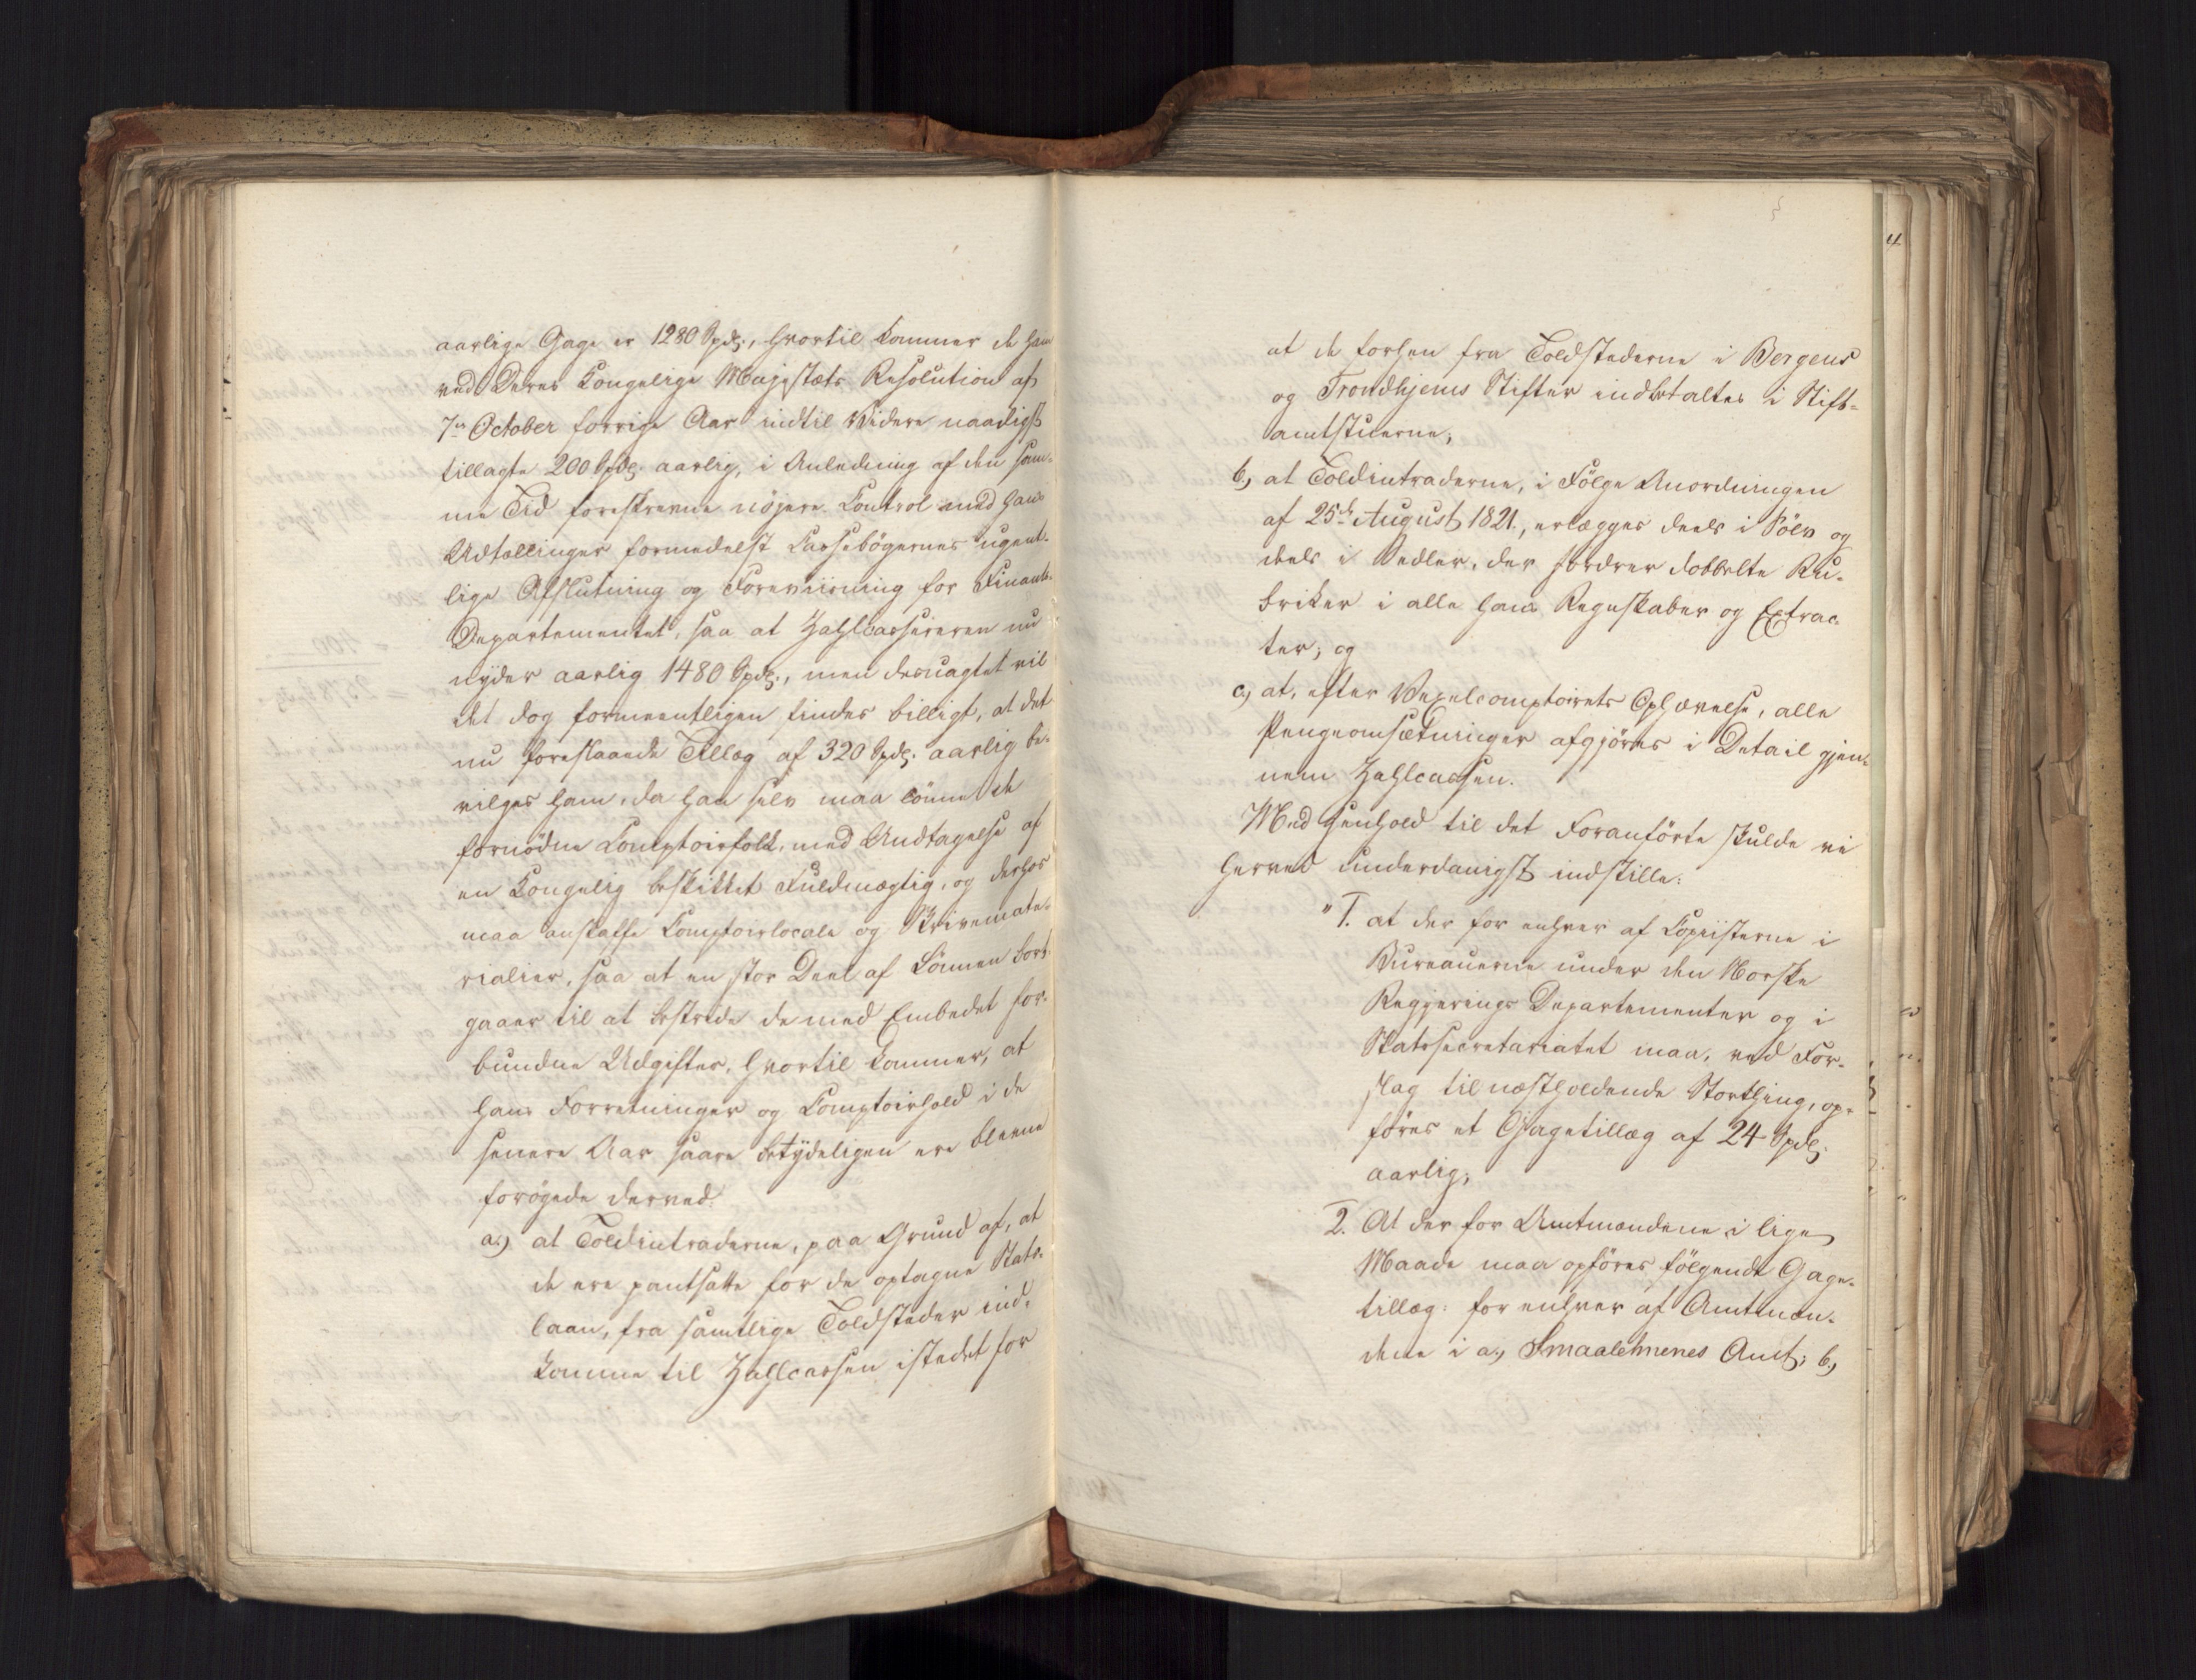 aarlige Gage er 1280 Spd., hvortil kommer de ham
ved Deres Kongelige Majestæts Resolution af
7de October forrige Aar indtil Videre naadigst
tillagte 200 Spd. aarlig, i Anledning af den sam-
me Tid foreskrevne nöjere Control med hans
Udtællinger formedelst Cassebögernes ugent-
lige Afslutning og Foreviisning for Finants-
Departementet, saa at Zahlcassereren nu
nyder aarlig 1480 Spd., men desuagtet vil
det dog formeentligen findes billigt, at det
nu foreslaaede Tillæg af 320 Spd. aarlig be-
vilges ham, da han selv maa lönne de
fornödne Comptoirfolk, med Undtagelse af
en Kongelig beskikket Fuldmægtig, og derhos
maa anskaffe Comptoirlocale og Skrivemate-
rialier, saa at en stor Deel af Lönnen bort-
gaaer til at bestride de med Embedet for-
bundne Udgifter, hvortil kommer, at
hans Forretninger og Comptoirhold i de
senere Aar saare betydeligen ere blevne
forögede derved:
a.) at Toldintraderne, paa Grund af, at
de ere pantsatte for de optagne Stats-
laan, fra samtlige Toldsteder ind-
komme til Zahlcassen istedet for
4
at de forhen fra Toldstederne i Bergens
og Trondhjems Stifter indbetaltes i Stift-
amtstuerne;
b.) at Toldintraderne, i Fölge Anordningen
af 25de August 1821., erlægges deels i Sölv og
deels i Sedler, der fordrer dobbelte Ru-
briker i alle hans Regnskaber og Extrac-
ter; og
c.) at, efter Vexelcomptoirets Ophævelse, alle
Pengeomsætninger afgjöres i Detail gjen-
nem Zahlcassen.
Med Henhold til det Foranförte skulde vi
herved underdanigst indstille:
"1. at der for enhver af Copiisterne i
Bureauerne under den Norske
Regjerings Departementer og i
Statssecretariatet maa, ved For-
slag til næstholdende Storthing, op-
föres et Gagetillæg af 24 Spd.
aarlig;
2. At der for Amtmændene i lige
Maade maa opföres fölgende Gage-
tillæg: for enhver af Amtmæn-
dene i a.) Smaalehnenes Amt; b.)